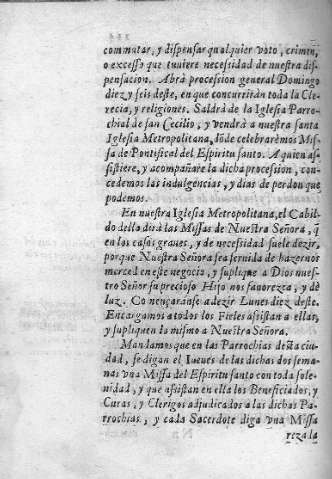 commutar, y dispensar qualquier voto, crimen,
o excesso que tuuiere necessidad de nuestra dis-
pensacion. Abrà procession general Domingo
diez y seis deste, en que concurriràn toda la Cle-
recia, y religiones. Saldrà de la Iglesia Parro-
chial de san Cecilio, y vendrà a nuestra santa
Iglesia Metropolitana, dõde celebrarèmos Mis-
sa de Pontifical del Espiritu santo. A quien as-
sistiere, y acompañare la dicha procession, con-
cedemos las indulgencias, y dias de perdon que
podemos.
En nuestra Iglesia Metropolitana, el Cabil-
do della dirà las Missas de Nuestra Señora, q̃
en los casos graues, y de necesidad suele dezir,
porque Nuestra Señora sea seruida de hazernos
merced en este negocio, y suplique a Dios nues-
tro Señor su precioso Hijo nos fauorezca, y dè
luz. Començaranse a dezir Lunes diez deste.
Encargamos a todos los Fieles assistan a ellas,
y supliquen lo mismo a Nuestra Señora.
Mandamos que en las Parrochias desta ciu-
dad, se digan el Iueues de las dichas dos sema-
nas vna Missa del Espiritu santo con toda sole-
nidad, y que assistan en ella los Beneficiados, y
Curas, y Clerigos adjudicados a las dichas Pa-
rrochias, y cada Sacerdote diga vna Missa
reza la